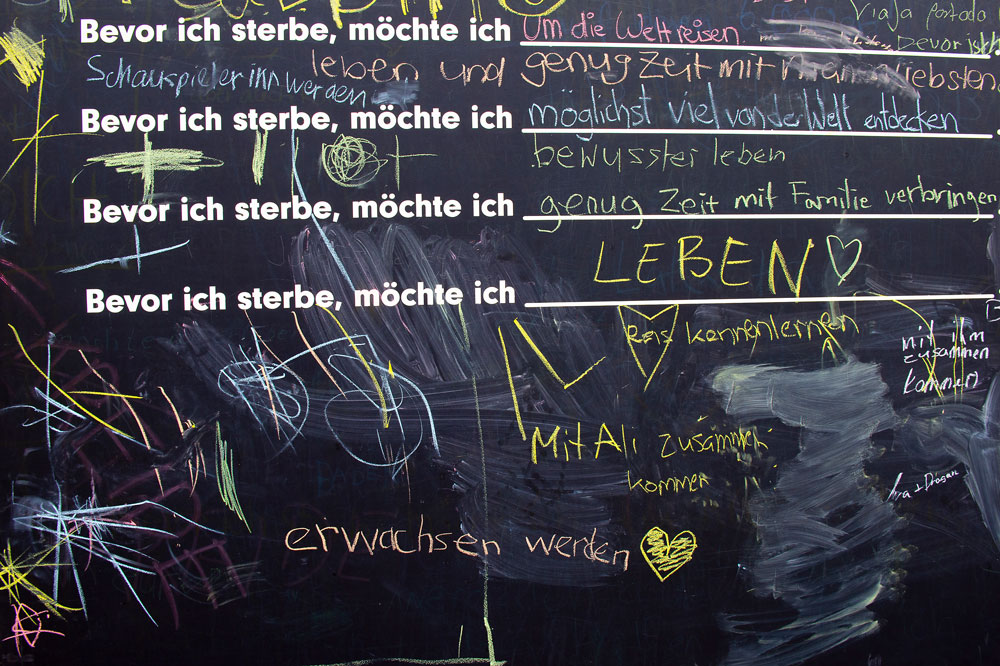 Bevor ich sterbe, möchte ich Um die Welt reisen.
Schauspielerin werden
leben und genug Zeit mit liebsten
Bevor ich sterbe, möchte ich möglichst viel von der Welt entdecken
bewusster leben
Bevor ich sterbe, möchte ich genug Zeit mit Familie verbringen
LEBEN
Bevor ich sterbe, möchte ich
kennenlernen
mit ihm
zusammen
kommen
Mit Ali zusammen
kommen
erwachsen werden